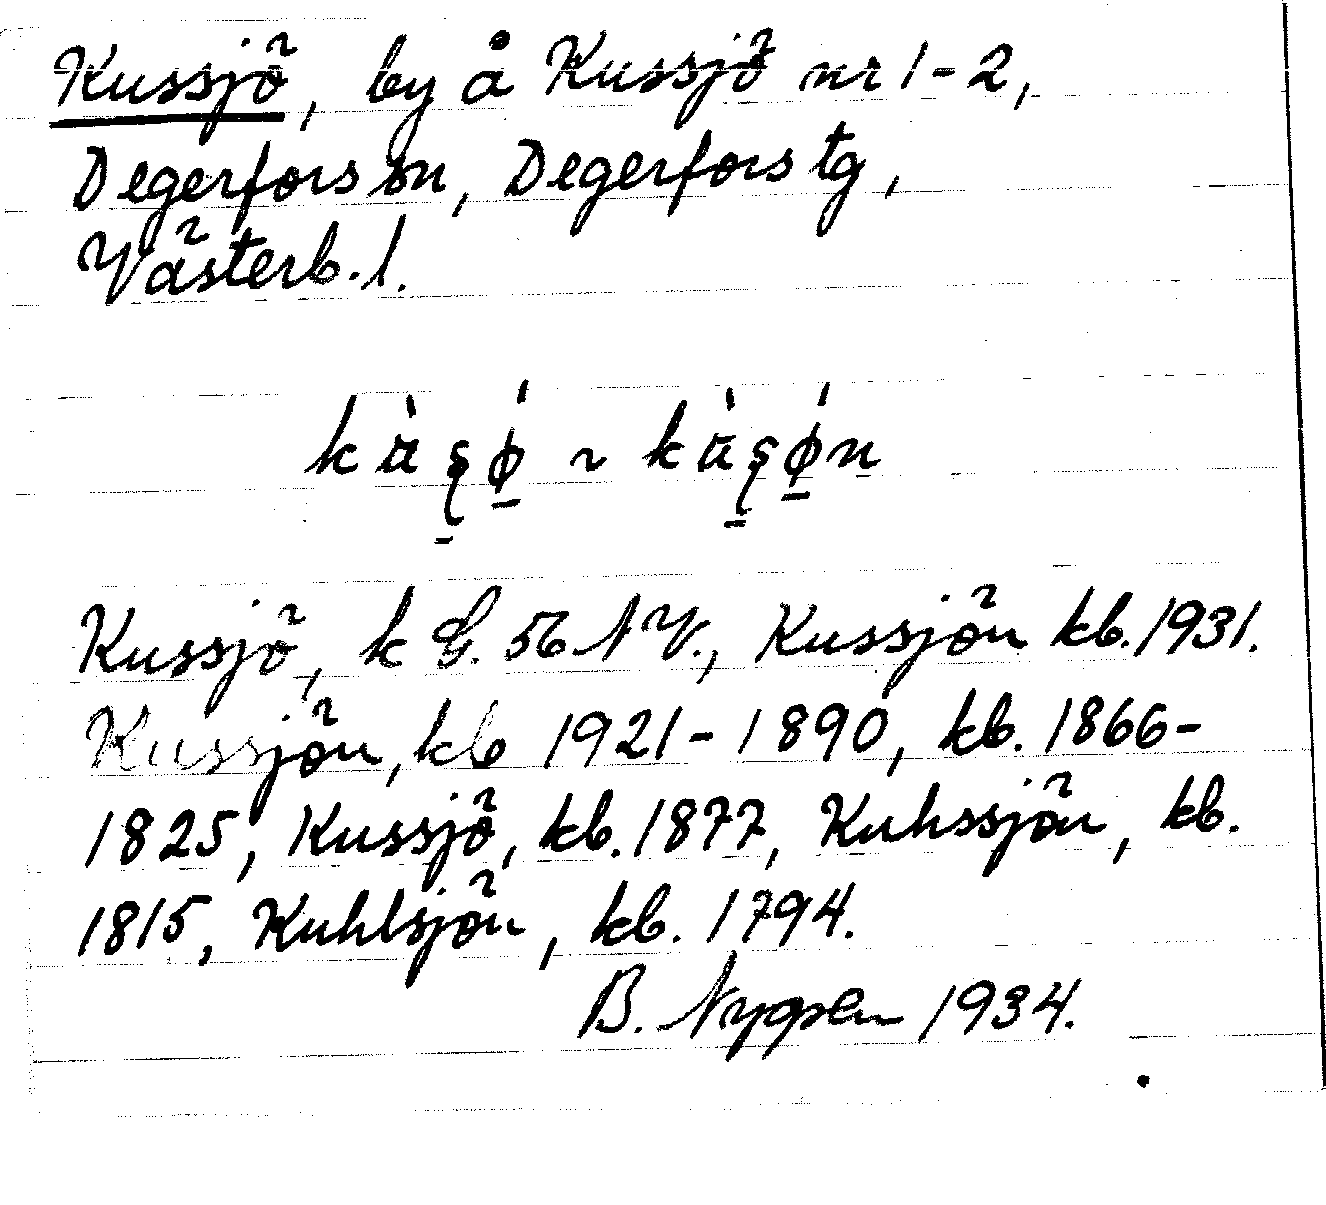 Kussjö, by å Kussjö nr 1-2,
Degerfors sn, Degerfors tg,
Västerb. l.
Kussjö, k G. 56 NV., Kussjön kb. 1931.
Kussjön, kb 1921-1890, kb. 1866-
1825, Kussjö, kb. 1877, Kuhssjön, kb.
1815, Kuhlsjön, kb. 1794.
B. Nygren 1934.